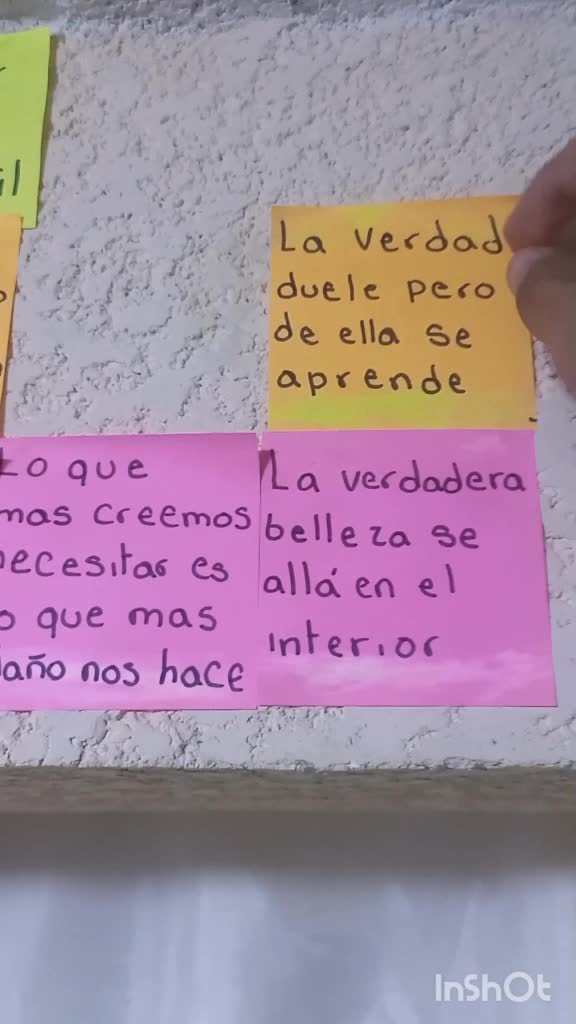 La verdad
duele pero
de ella se
aprende
Lo que
mas creemos
necesitas es
o que mas
daño nos hace
La verdadera
belleza se
allá en el
interior
InShOt